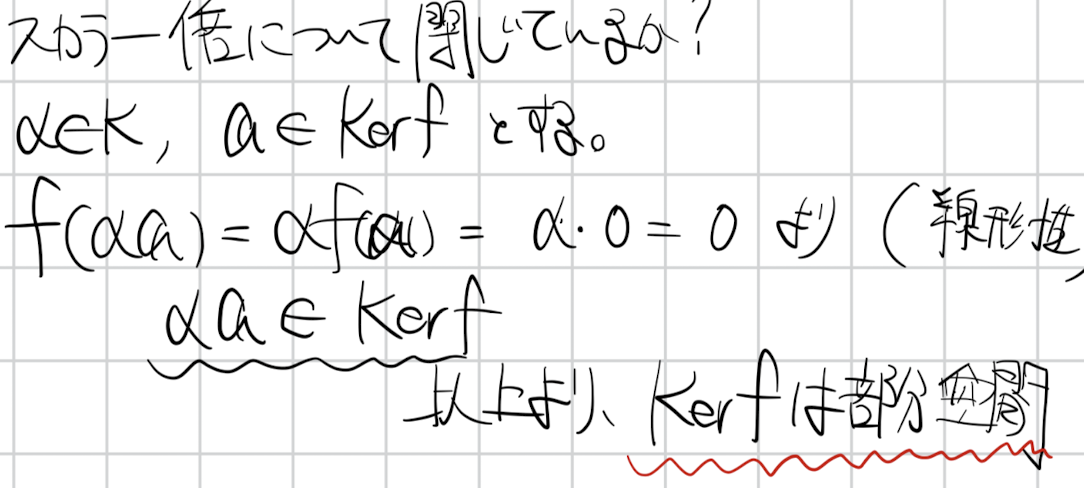 スカラー倍について閉じているか?
α∈K, a∈Kerf とする。
f(αa) = αf(a) = α・0 = 0 より (線形性)
αa∈Kerf
以上より、Kerfは部分空間